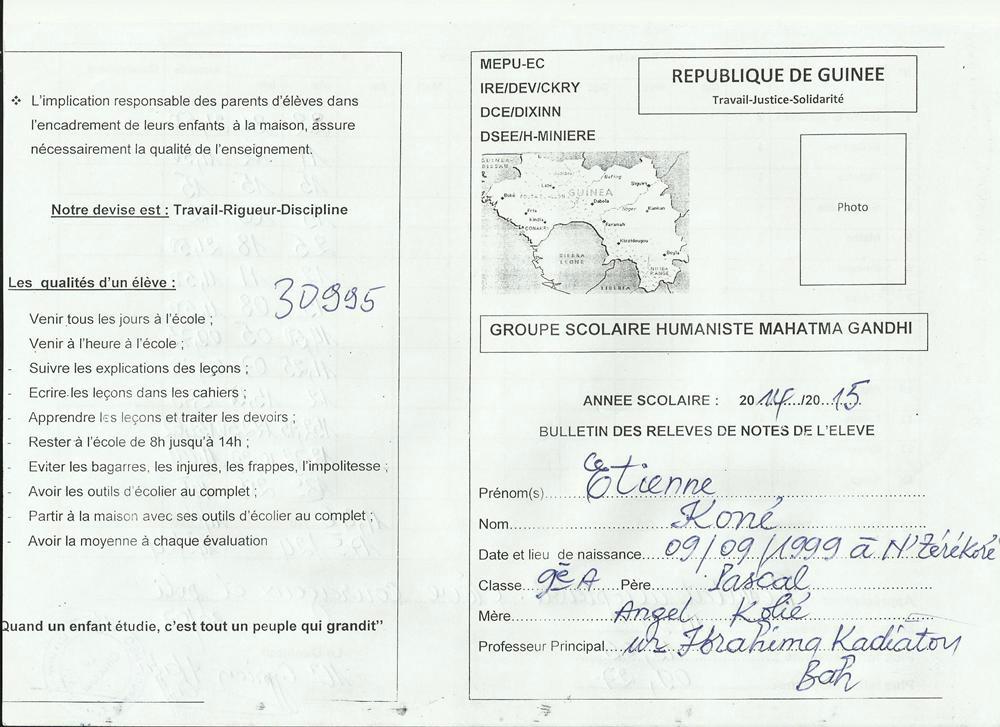 ❖ L'implication responsable des parents d'élèves dans
l'encadrement de leurs enfants à la maison, assure
nécessairement la qualité de l'enseignement.
Notre devise est : Travail-Rigueur-Discipline
Les qualités d'un élève :
30995
Venir tous les jours à l'école ;
Venir à l'heure à l'école ;
- Suivre les explications des leçons ;
- Ecrire les leçons dans les cahiers ;
- Apprendre les leçons et traiter les devoirs ;
- Rester à l'école de 8h jusqu'à 14h ;
- Eviter les bagarres, les injures, les frappes, l'impolitesse ;
- Avoir les outils d'écolier au complet ;
- Partir à la maison avec ses outils d'écolier au complet ;
- Avoir la moyenne à chaque évaluation
Quand un enfant étudie, c'est tout un peuple qui grandit"
MEPU-EC
IRE/DEV/CKRY
DCE/DIXINN
DSEE/H-MINIERE
REPUBLIQUE DE GUINEE
Travail-Justice-Solidarité
GUINEA
Labe
Dabola
Kankan
Faranah
Kindia
CONAKRY
Kissidougou
SIERRA
LEONE
LIBERIA
Photo
GROUPE SCOLAIRE HUMANISTE MAHATMA GANDHI
ANNEE SCOLAIRE : 2014/2015
BULLETIN DES RELEVES DE NOTES DE L'ELEVE
Prénom(s) Etienne
Nom Koné
Date et lieu de naissance 09/09/1999 à N'Zérékoré
Classe 9è A Père Pascal
Mère Angel Kolié
Professeur Principal Mr Ibrahima Kadiatou
Bah